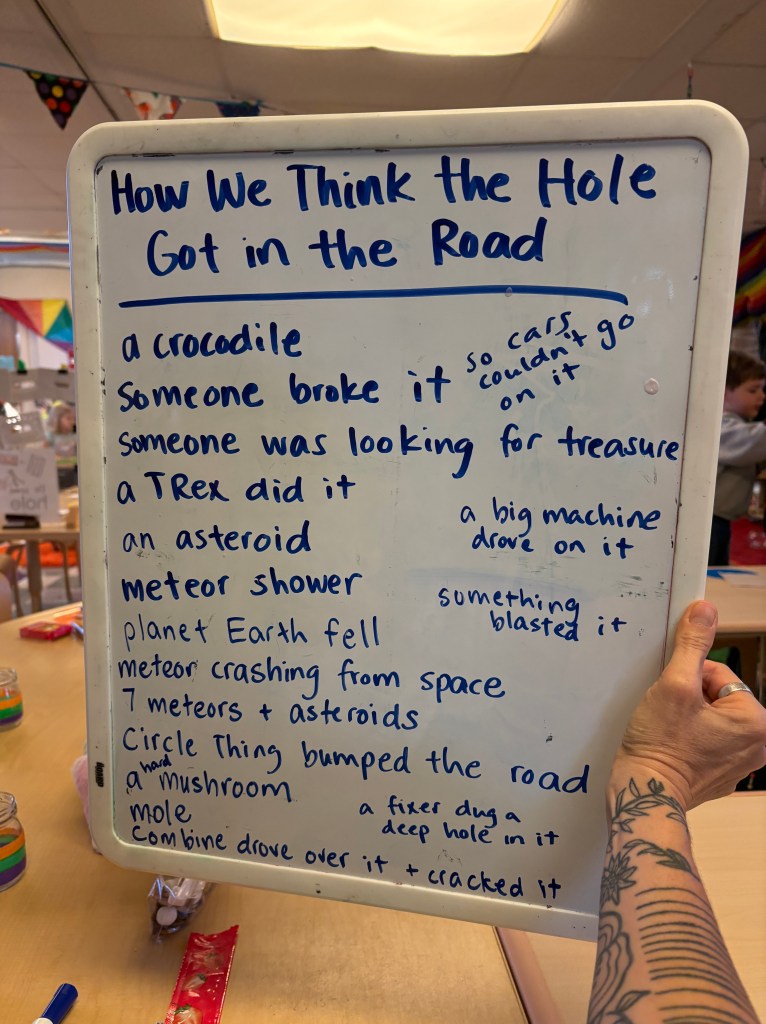 How We Think the Hole
Got in the Road
a crocodile
someone broke it
so cars
couldn't go
on it
someone was looking for treasure
a TRex did it
an asteroid
a big machine
drove on it
meteor shower
something
blasted it
planet Earth fell
meteor crashing from space
7 meteors + asteroids
Circle Thing bumped the road
a hard mushroom
mole
a fixer dug a
deep hole in it
combine drove over it + cracked it